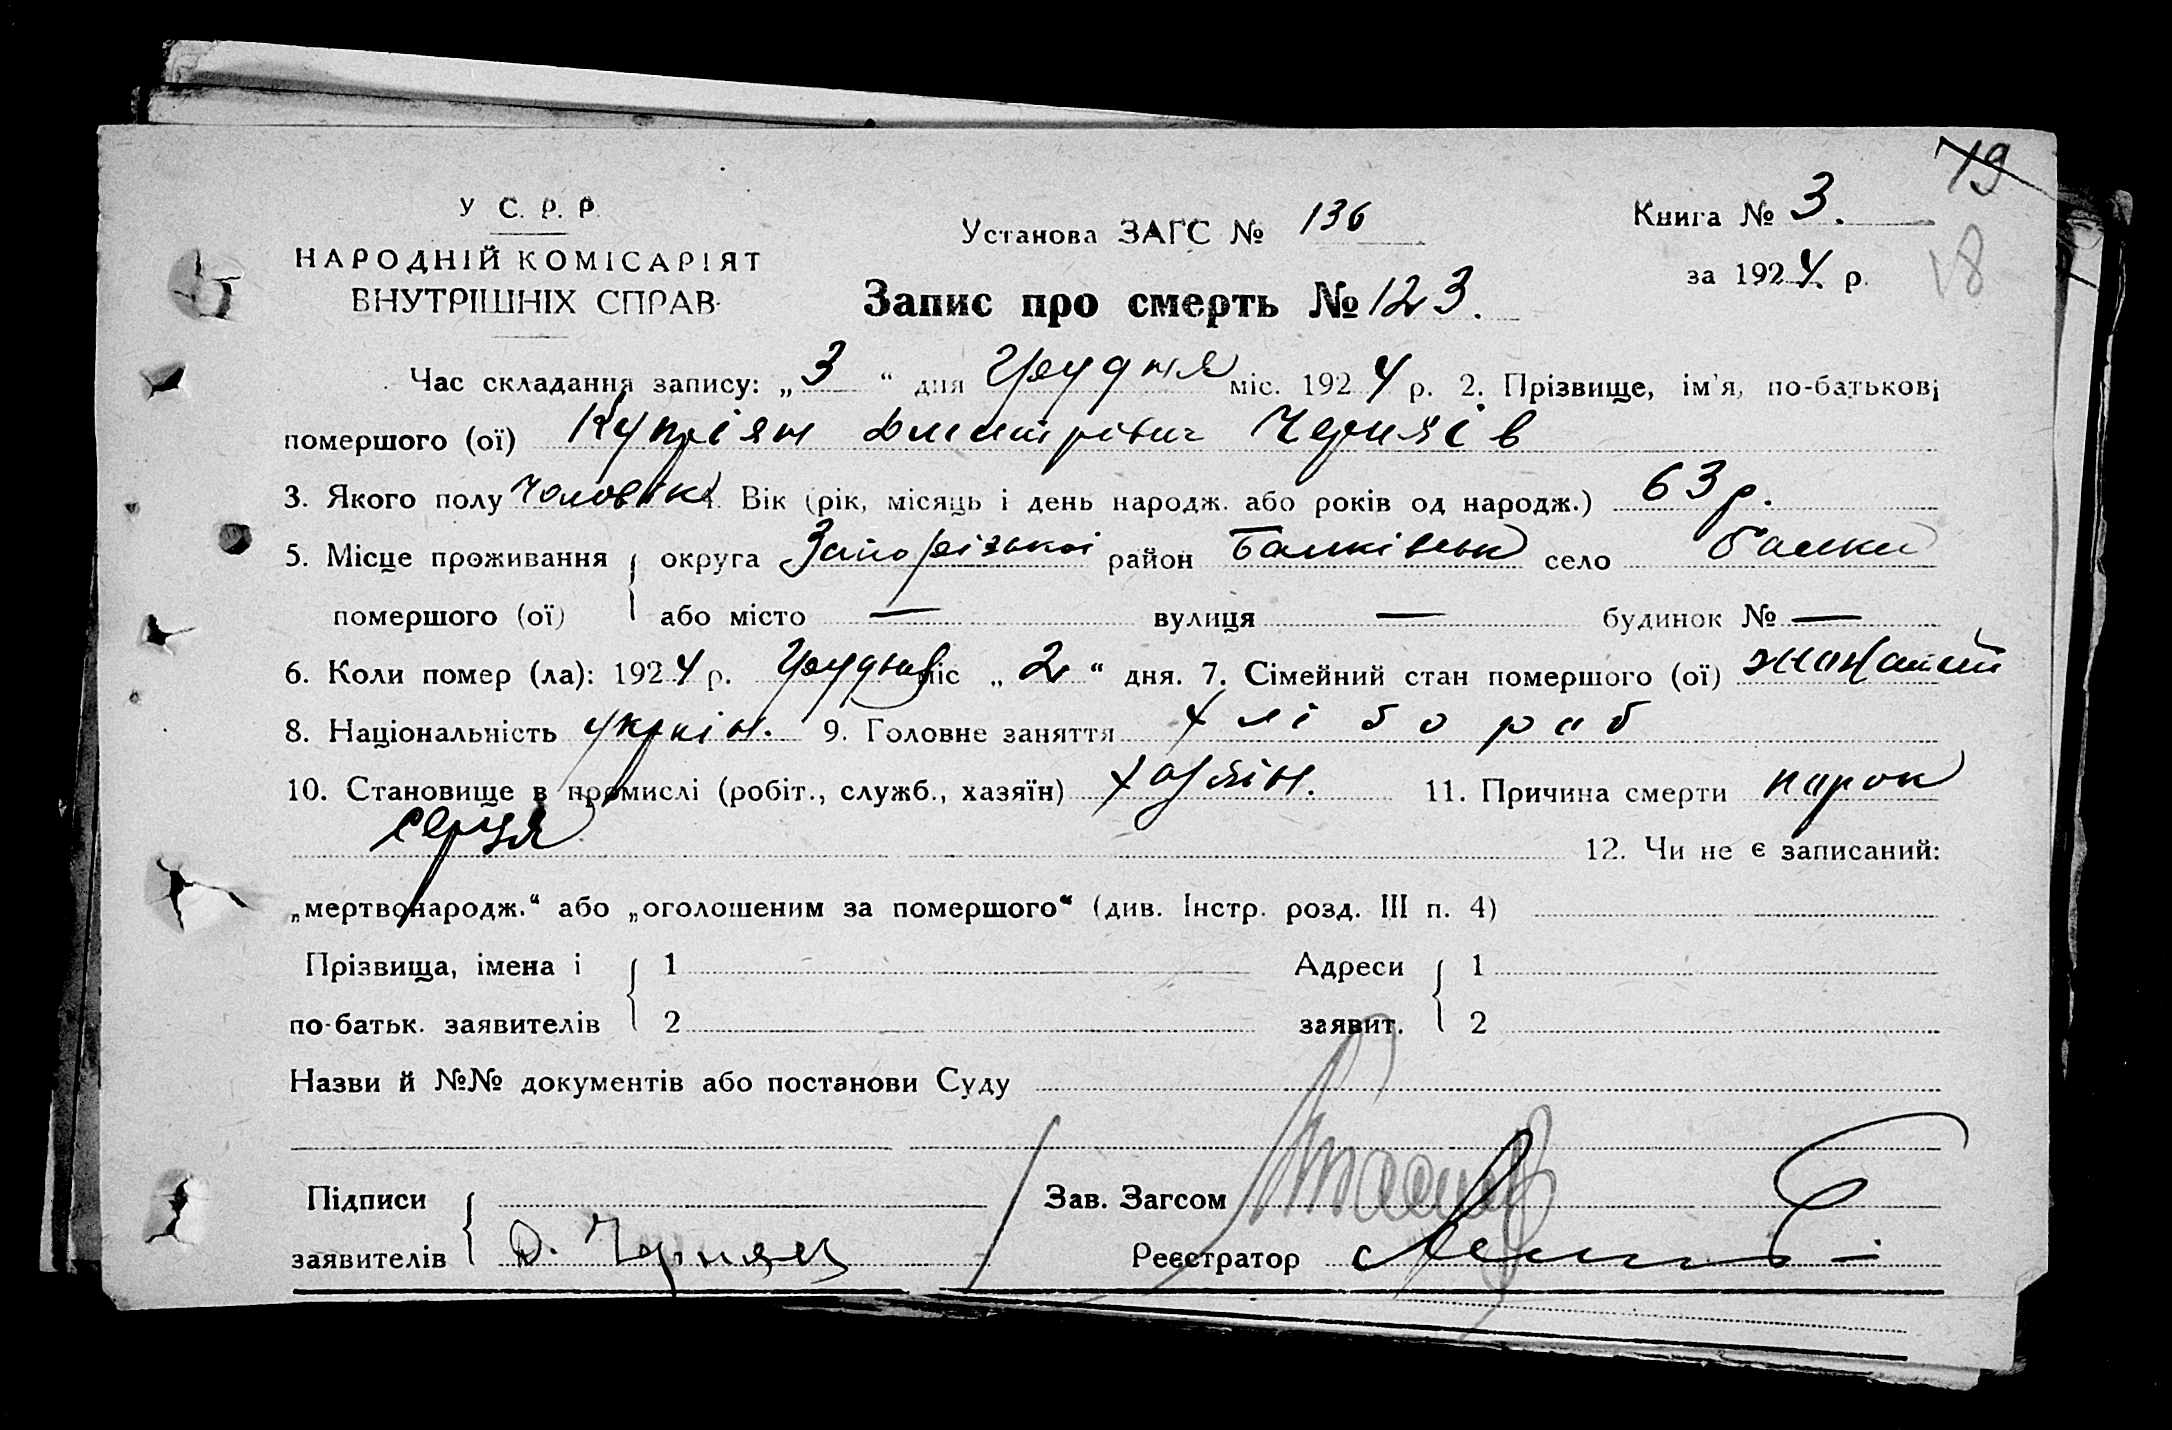 19
У С. Р. Р.
Установа ЗАГС № 136
Книга № 3.
18
НАРОДНІЙ КОМІСАРІЯТ
ВНУТРІШНІХ СПРАВ
за 1924 р.
Запис про смерть № 123.
Час складання запису: „3“ дня Грудня міс. 1924 р. 2. Прізвище, ім'я, по-батькові
помершого (ої) Купріян Дмитрівич
3. Якого полу Чоловік 4. Вік (рік, місяць і день народж. або років од народж.) 63 р.
5. Місце проживання округа Запорізької район Балківськ село Балки
помершого (ої) або місто — вулиця — будинок № —
6. Коли помер (ла): 1924 р. Грудня міс „2“ дня. 7. Сімейний стан помершого (ої) жонатий
8. Національність украін. 9. Головне заняття хлібороб
10. Становище в промислі (робіт., служб., хазяїн) хазяін. 11. Причина смерти парок
серця 12. Чи не є записаний:
„мертвонародж.“ або „оголошеним за помершого“ (див. Інстр. розд. III п. 4)
Прізвища, імена і 1 Адреси 1
по-батьк. заявителів 2 заявит. 2
Назви й №№ документів або постанови Суду
Підписи Зав. Загсом
заявителів Реєстратор